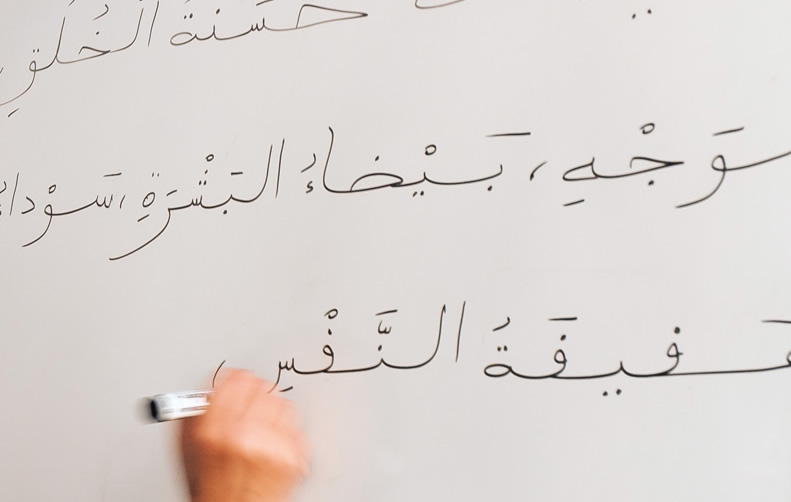 حَسَنَةُ الْخُلُقِ
وَجْهِ، بَيْضَاءُ الْبَشْرَةِ، سَوْدَاءُ
فِيفَةُ النَّفْسِ،